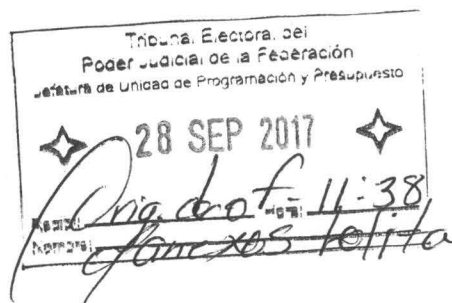 Tribunal Electoral del
Poder Judicial de la Federación
Jefatura de Unidad de Programación y Presupuesto
28 SEP 2017
Recibí: Hora: 11:38
Nombre: Anexos Lolita